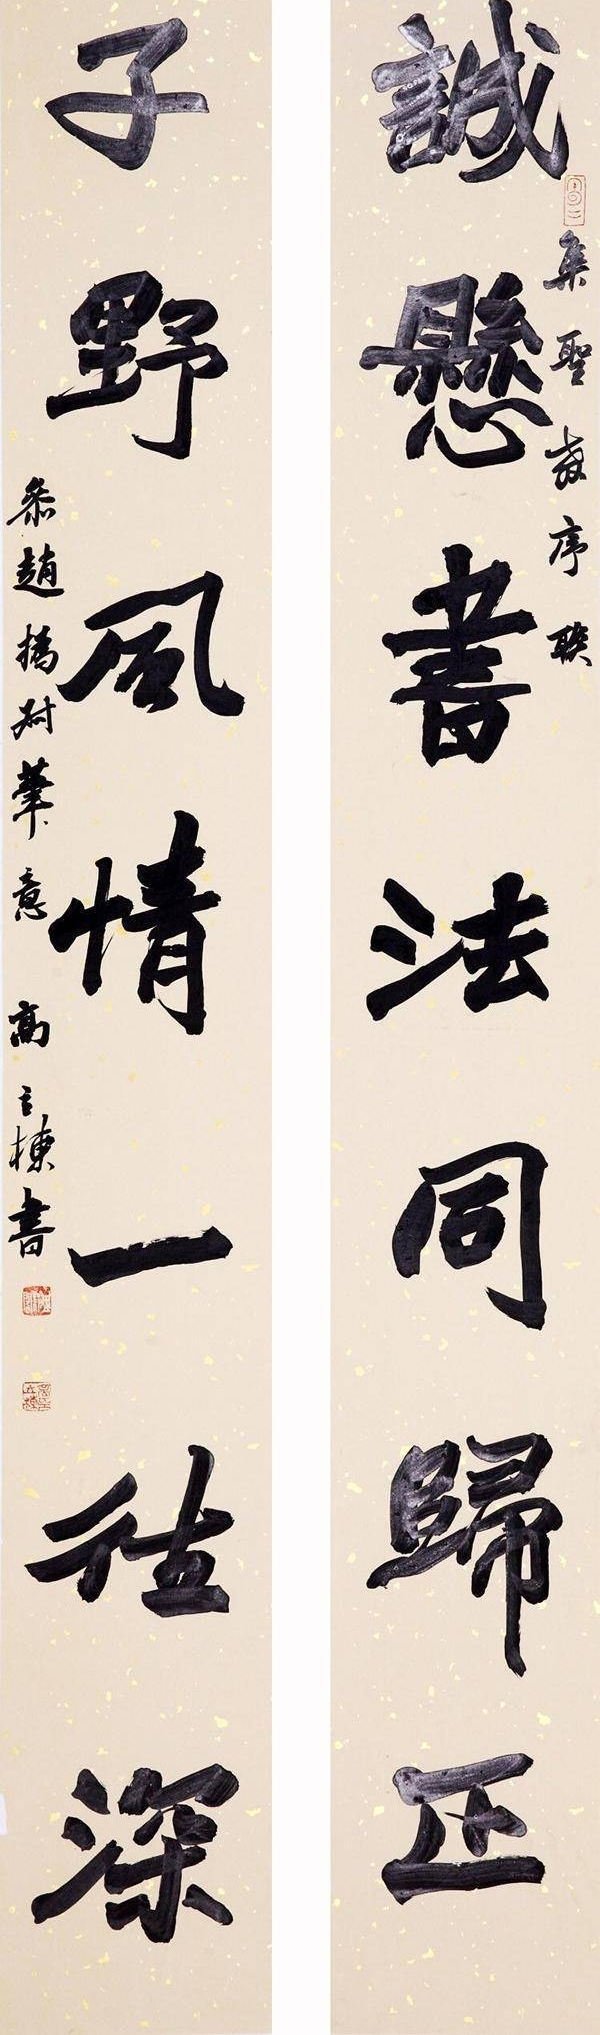 誠懸書法同歸正
集聖教序聯
子野風情一往深
參趙撝叔筆意 高立棟書